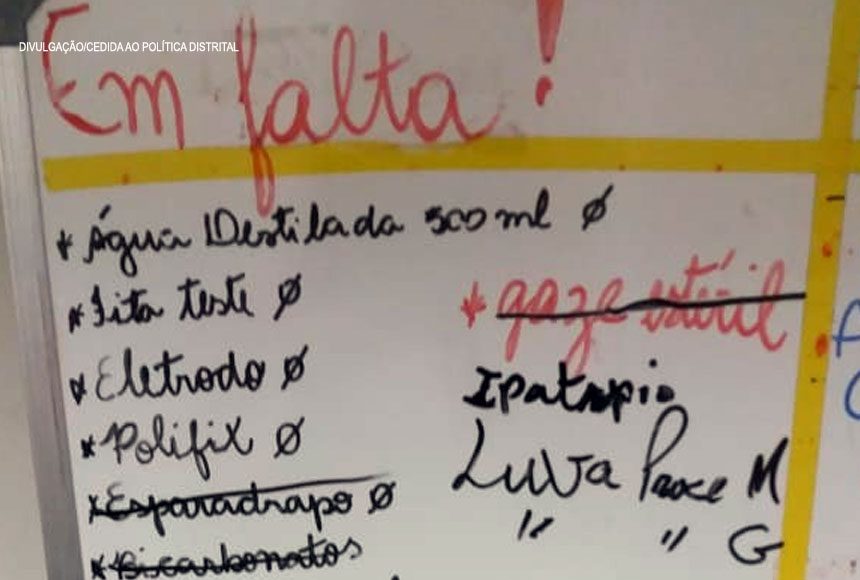 DIVULGAÇÃO/CEDIDA AO POLÍTICA DISTRITAL
Em falta!
* Água Destilada 500 ml Ø
* Fita teste Ø
* Eletrodo Ø
* Polifix Ø
* Esparadrapo Ø
* Bicarbonatos
* gaze estéril
Luva Proce M
" " G